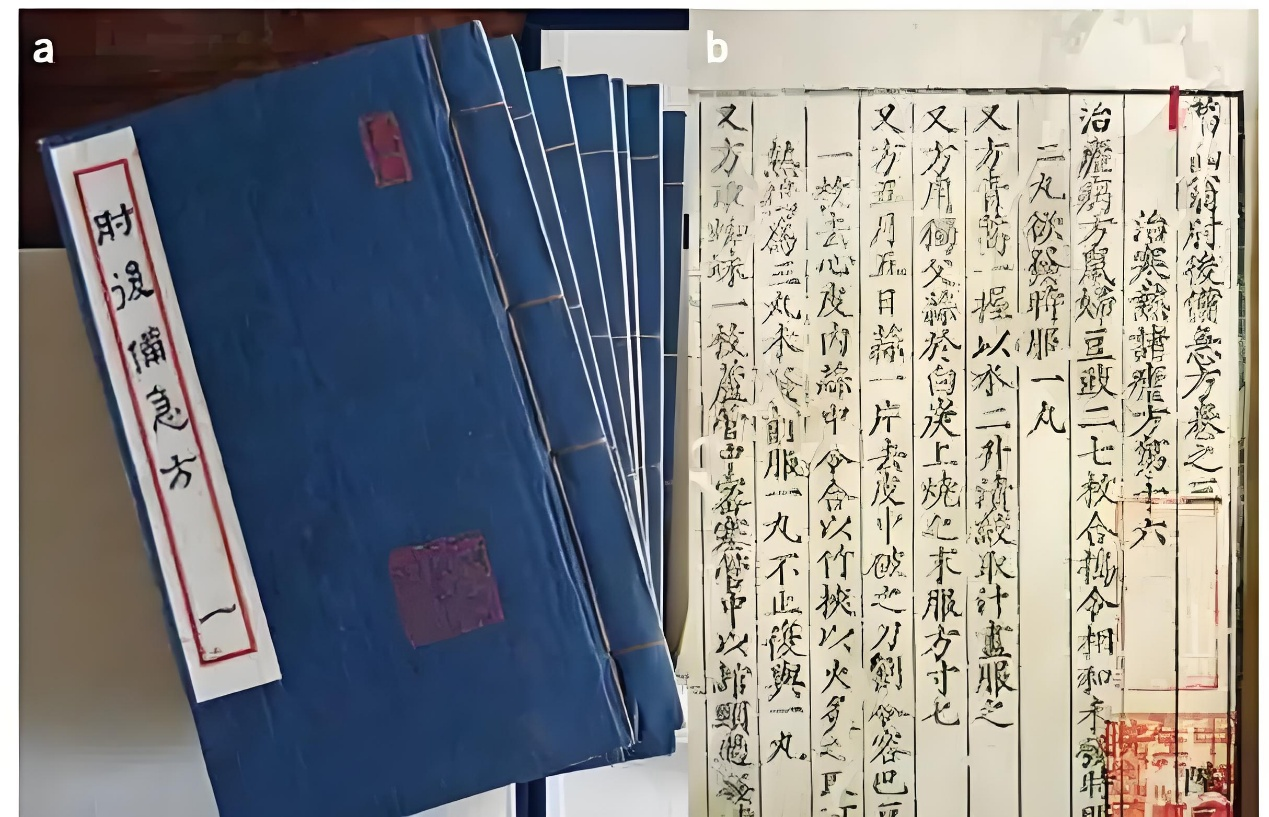 a
肘後備急方 一
b
仙翁肘後備急方卷之三
治寒熱諸瘧方第十六
治瘧病方鼠婦豆豉二七枚合搗令相和未發時服
二丸欲發時服一丸
又方青蒿一握以水二升漬絞取汁盡服之
又方用獨父蒜於白炭上燒之末服方寸匕
又方五月五日蒜一片去皮中破之刀割令容巴豆
一枚去心皮內蒜中令合以竹挾以火炙之取可
熱搗為三丸未發前服一丸不止復與一丸
又方取蜘蛛一枚蘆管中密塞管中以綰頸過發